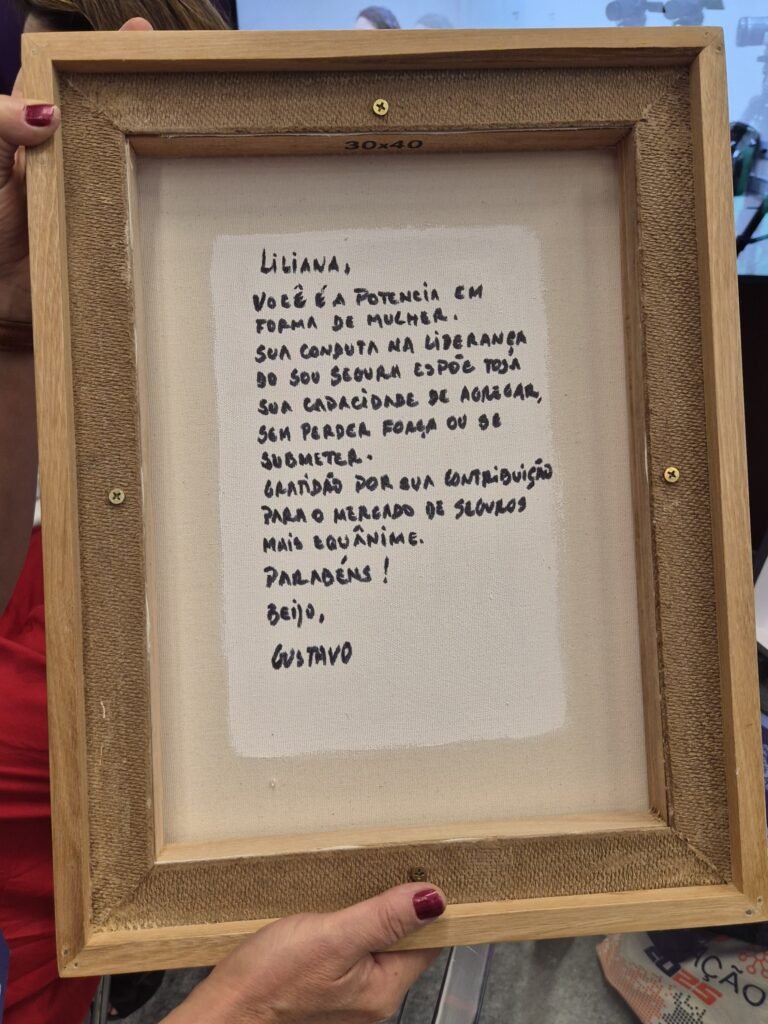 30x40
LILIANA,
VOCÊ É A POTENCIA EM
FORMA DE MULHER.
SUA CONDUTA NA LIDERANÇA
DO SOU SEGURA ESPÕE TODA
SUA CAPACIDADE DE AGREGAR,
SEM PERDER FORÇA OU SE
SUBMETER.
GRATIDÃO POR SUA CONTRIBUIÇÃO
PARA O MERCADO DE SEGUROS
MAIS EQUÂNIME.
PARABÉNS!
BEIJO,
GUSTAVO
IÇÃO
2025